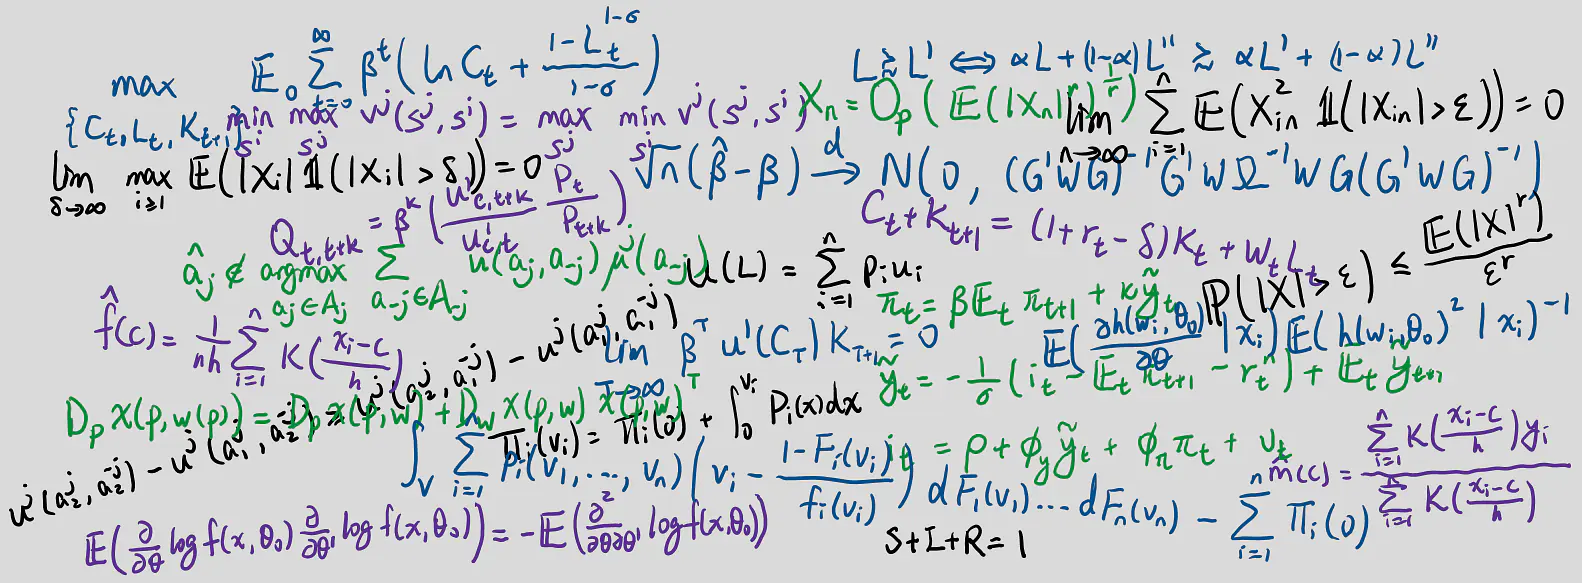 max_{\{C_t, L_t, K_{t+1}\}} 𝔼_0 ∑_{t=0}^{∞} β^t ( ln C_t + \frac{1-L_t^{1-σ}}{1-σ} )
L ≿ L' ⇔ αL + (1-α)L'' ≿ αL' + (1-α)L''
min_{s^i} max_{s^j} v^j(s^j, s^i) = max_{s^j} min_{s^i} v^j(s^j, s^i)
X_n = O_p( 𝔼(|X_n|^r)^{\frac{1}{r}} )
lim_{n→∞} ∑_{i=1}^{n} 𝔼(X_{in}^2 𝟙(|X_{in}| > ε)) = 0
lim_{δ→∞} max_{i≥1} 𝔼(|X_i| 𝟙(|X_i| > δ)) = 0
√n(β̂ - β) \xrightarrow{d} N(0, (G'WG)^{-1} G'WΩ^{-1}WG(G'WG)^{-1})
Q_{t,t+k} = β^k ( \frac{u'_{c,t+k}}{u'_{c,t}} \frac{P_t}{P_{t+k}} )
C_t + K_{t+1} = (1 + r_t - δ)K_t + W_t L_t
â_j ∉ argmax_{a_j ∈ A_j} ∑_{a_{-j} ∈ A_{-j}} u(a_j, a_{-j}) μ^j(a_{-j})
U(L) = ∑_{i=1}^{n} p_i u_i
ℙ(|X| > ε) ≤ \frac{𝔼(|X|^r)}{ε^r}
π_t = β𝔼_t π_{t+1} + κỹ_t
f̂(c) = \frac{1}{nh} ∑_{i=1}^{n} K( \frac{x_i - c}{h} )
lim_{T→∞} β^T u'(C_T) K_{T+1} = 0
𝔼( \frac{∂h(w_i, θ_0)}{∂θ} | x_i ) 𝔼( h(w_i, θ_0)^2 | x_i )^{-1}
u^j(a_2^j, a_2^{-j}) - u^j(a_1^j, a_2^{-j}) ≥ u^j(a_2^j, a_1^{-j}) - u^j(a_1^j, a_1^{-j})
ỹ_t = -\frac{1}{σ} ( i_t - 𝔼_t π_{t+1} - r_t^n ) + 𝔼_t ỹ_{t+1}
D_p X(p, w(p)) = D_p X(p, w) + D_w X(p, w) X(p, w)^T
Π_i(v_i) = Π_i(0) + ∫_0^{v_i} P_i(x)dx
i_t = ρ + ϕ_y ỹ_t + ϕ_π π_t + v_t
∫_V ∑_{i=1}^{n} p_i(v_1, ..., v_n) ( v_i - \frac{1 - F_i(v_i)}{f_i(v_i)} ) dF_1(v_1)...dF_n(v_n) - ∑_{i=1}^{n} Π_i(0)
m̂(c) = \frac{∑_{i=1}^{n} K( \frac{x_i - c}{h} ) y_i}{∑_{i=1}^{n} K( \frac{x_i - c}{h} )}
𝔼( \frac{∂}{∂θ} log f(x, θ_0) \frac{∂}{∂θ'} log f(x, θ_0) ) = -𝔼( \frac{∂^2}{∂θ∂θ'} log f(x, θ_0) )
S+I+R = 1